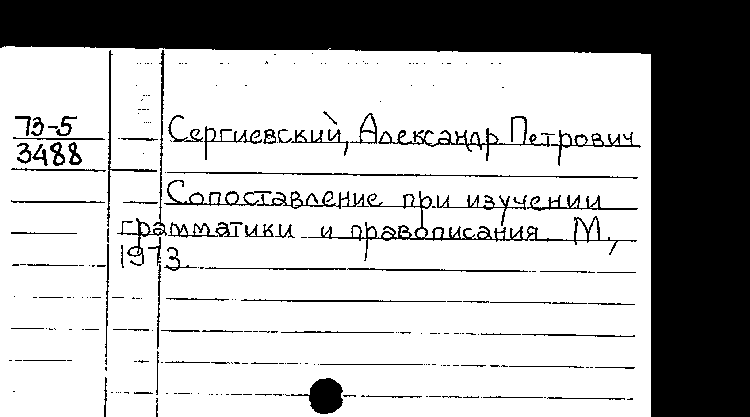 73-5
3488
Сергиевский, Александр Петрович
Сопоставление при изучении
грамматики и правописания. М.,
1973.